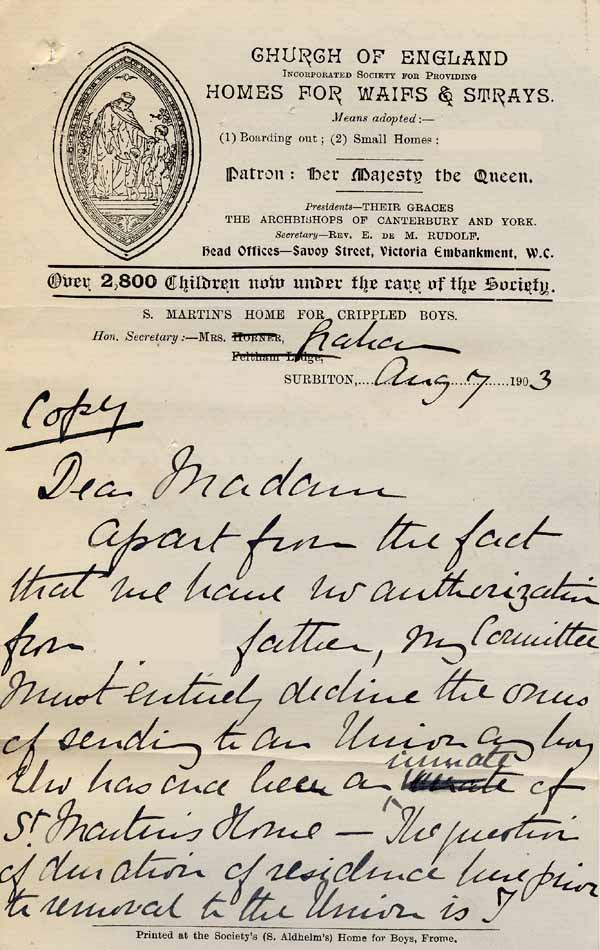 CHURCH OF ENGLAND
INCORPORATED SOCIETY FOR PROVIDING
HOMES FOR WAIFS & STRAYS.
Means adopted:—
(1) Boarding out; (2) Small Homes:
Patron: Her Majesty the Queen.
Presidents—THEIR GRACES
THE ARCHBISHOPS OF CANTERBURY AND YORK.
Secretary—REV. E. DE M. RUDOLF.
Head Offices—Savoy Street, Victoria Embankment, W.C.
Over 2,800 Children now under the care of the Society.
S. MARTIN'S HOME FOR CRIPPLED BOYS.
Hon. Secretary:—MRS. HORNER, Graham
Feltham Lodge,
SURBITON,....Aug 7..........1903
Copy
Dear Madam
Apart from the fact
that we have no authorization
from father, my Committee
must entirely decline the onus
of sending to an Union any boy
who has once been an inmate of
St. Martin's Home — The question
of duration of residence here prior
to removal to the Union is I
Printed at the Society's (S. Aldhelm's) Home for Boys, Frome.